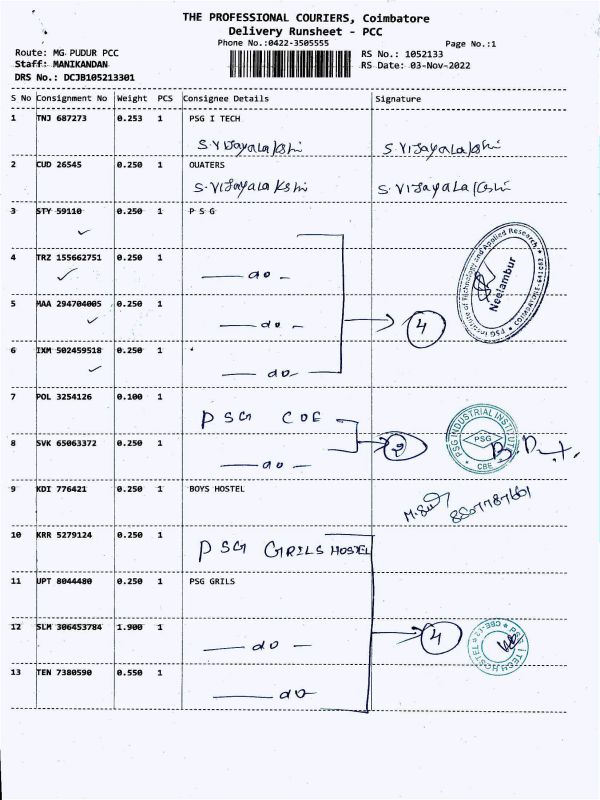 THE PROFESSIONAL COURIERS, Coimbatore
Delivery Runsheet - PCC
Phone No.:0422-3505555
Page No.:1
Route: MG PUDUR PCC
RS No.: 1052133
Staff: MANIKANDAN
RS Date: 03-Nov-2022
DRS No.: DCJB105213301
S No Consignment No Weight PCS Consignee Details Signature
1 TNJ 687273 0.253 1 PSG I TECH
S.VIJayalakshi S.VIJayalakshi
2 CUD 26545 0.250 1 OUATERS
S.VIJayalakshi S.VIJayalakshi
3 STY 59110 0.250 1 P S G
4 TRZ 155662751 0.250 1
do
PSG Institute of Technology and Applied Research
Neelambur
COIMBATORE-641 062
5 MAA 294704005 0.250 1
do
4
6 IXM 502459518 0.250 1
do
7 POL 3254126 0.100 1
PSG COE
PSG INDUSTRIAL INSTITUTE
PSG
CBE
8 SVK 65063372 0.250 1
do
2
9 KDI 776421 0.250 1 BOYS HOSTEL
10 KRR 5279124 0.250 1
PSG GRILS HOSTEL
11 UPT 8044480 0.250 1 PSG GRILS
12 SLM 306453784 1.900 1
do
4
PSG I TECH HOSTEL
13 TEN 7380590 0.550 1
do